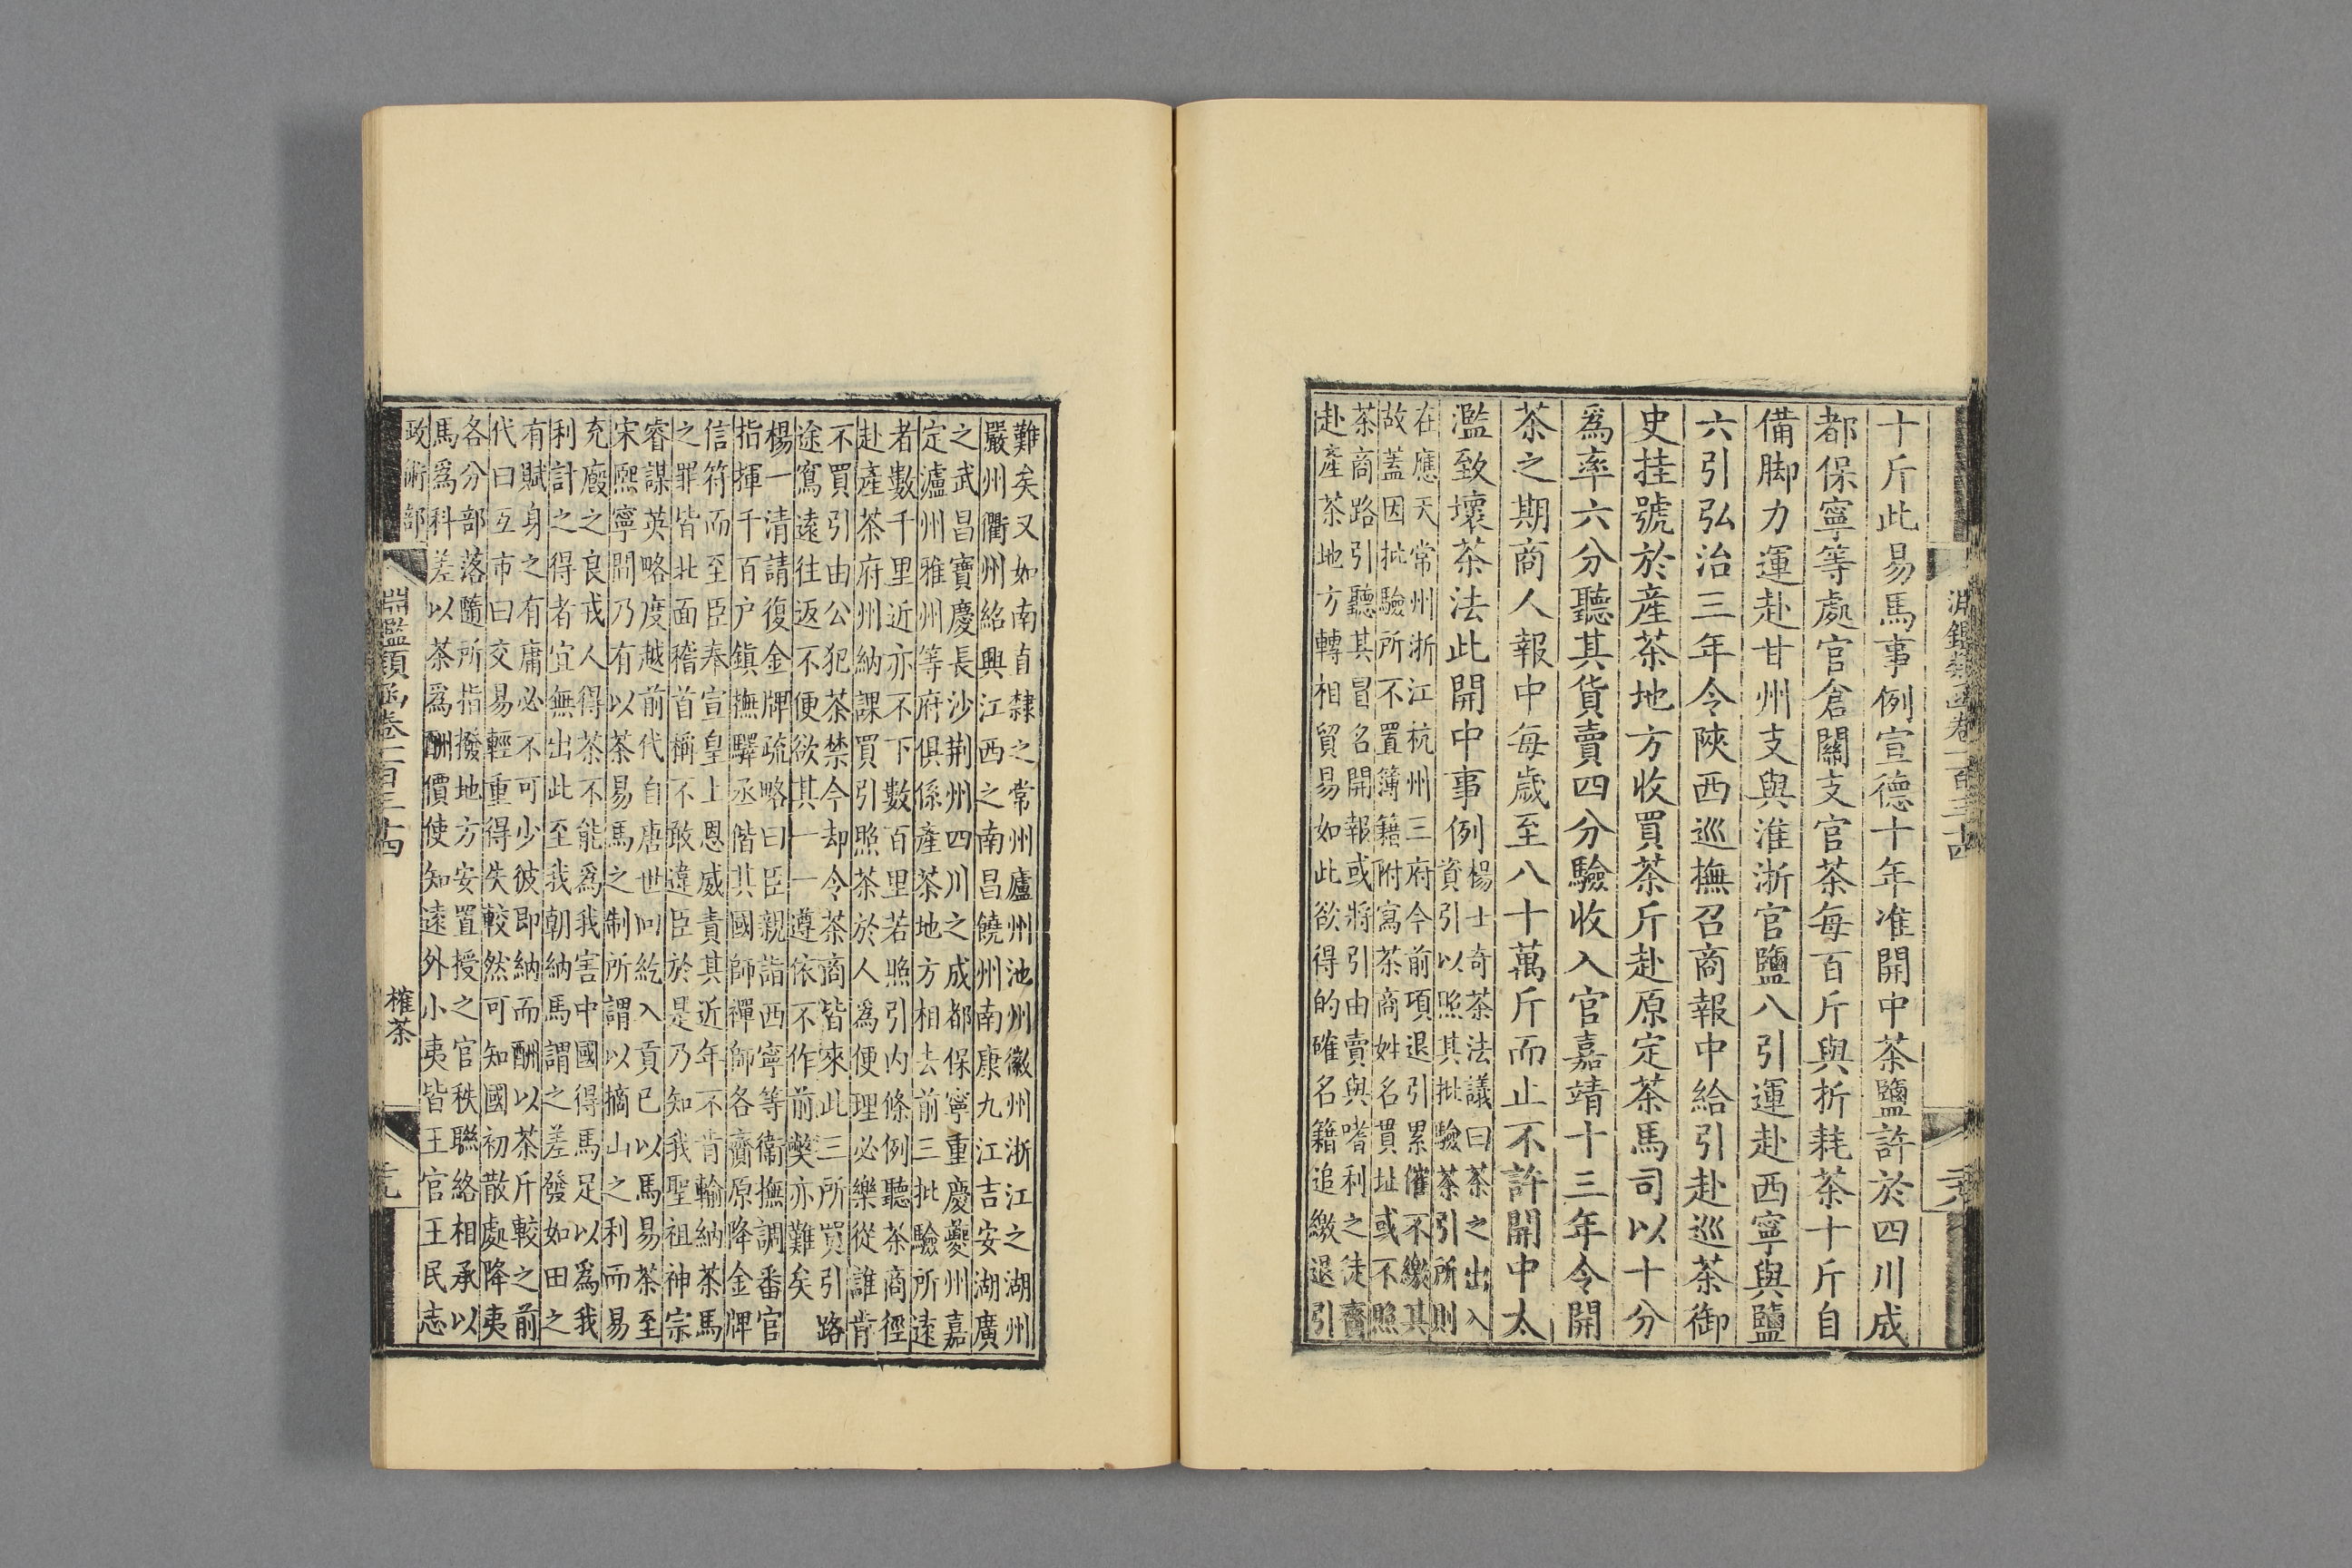 十斤此易馬事例宣德十年准開中茶鹽許於四川成
都保寧等處官倉關支官茶每百斤與折耗茶十斤自
備脚力運赴甘州支與淮浙官鹽八引運赴西寧與鹽
六引弘治三年令陝西巡撫召商報中給引赴巡茶御
史挂號於產茶地方收買茶斤赴原定茶馬司以十分
爲率六分聽其貨賣四分驗收入官嘉靖十三年令開
茶之期商人報中每歲至八十萬斤而止不許開中太
濫致壞茶法此開中事例
楊士奇茶法議曰茶之出入
資引以照其批驗茶引所則
在應天常州浙江杭州三府今前項退引累催不繳其
故蓋因批驗所不置簿籍附寫茶商姓名貫址或不照
茶商路引聽其冒名開報或將引由賣與嗜利之徒齎
赴產茶地方轉相貿易如此欲得的確名籍追繳退引
難矣又如南直隸之常州廬州池州徽州浙江之湖州
嚴州衢州紹興江西之南昌饒州南康九江吉安湖廣
之武昌寶慶長沙荆州四川之成都保寧重慶夔州嘉
定瀘州雅州等府俱係產茶地方相去前三批驗所遠
者數千里近亦不下數百里若照引内條例聽茶商徑
赴產茶府州納課買引照茶於人爲便理必樂從誰肯
不買引由公犯茶禁今却令茶商皆來此三所買引路
途寫遠往返不便欲其一一遵依不作前獘亦難矣
楊一清請復金牌疏略曰臣親詣西寧等衞撫調番官
指揮千百户鎮撫驛丞偕其國師禪師各齎原降金牌
信符而至臣奉宣皇上恩威責其近年不肯輸納茶馬
之罪皆北面稽首稱不敢違臣於是乃知我聖祖神宗
睿謀英略度越前代自唐世回紇入貢已以馬易茶至
宋熙寧間乃有以茶易馬之制所謂以摘山之利而易
充廏之良戎人得茶不能爲我害中國得馬足以爲我
利計之得者宜無出此至我朝納馬謂之差發如田之
有賦身之有庸必不可少彼即納而酬以茶斤較之前
代曰互市曰交易輕重得失較然可知國初散處降夷
各分部落隨所指撥地方安置授之官秩聯絡相承以
馬爲科差以茶爲酬價使知遠外小夷皆王官王民志
政術部
淵鑑類函卷一百三十四
榷茶